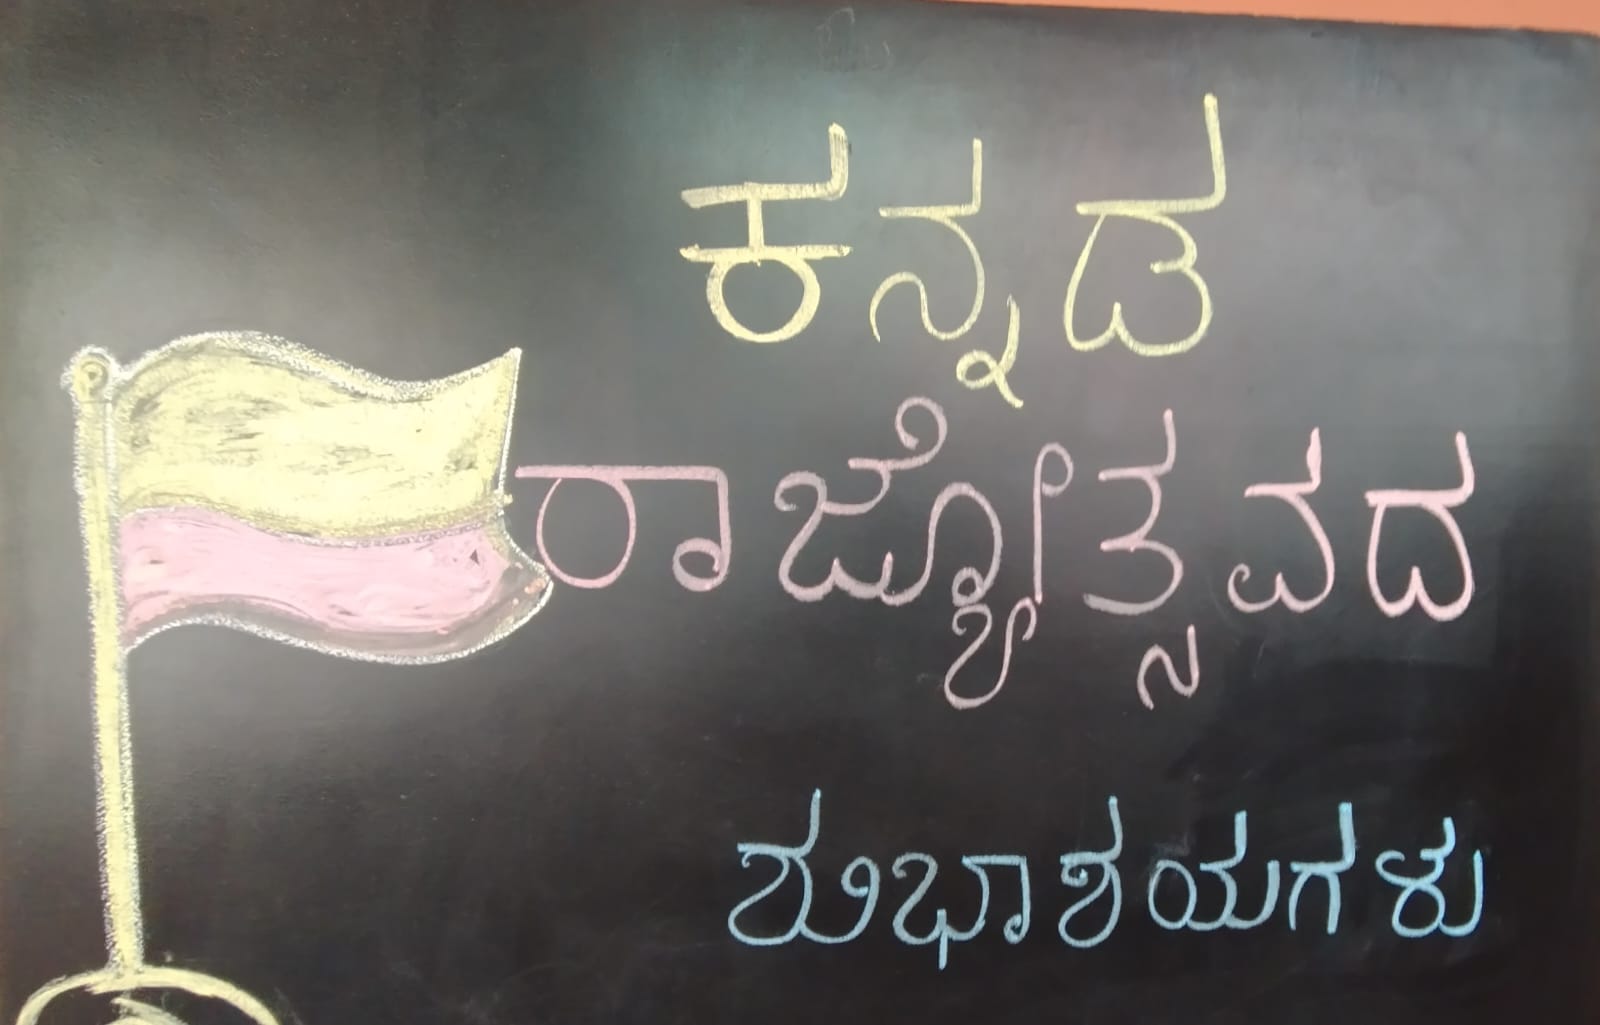 ಕನ್ನಡ
ರಾಜ್ಯೋತ್ಸವದ
ಶುಭಾಶಯಗಳು